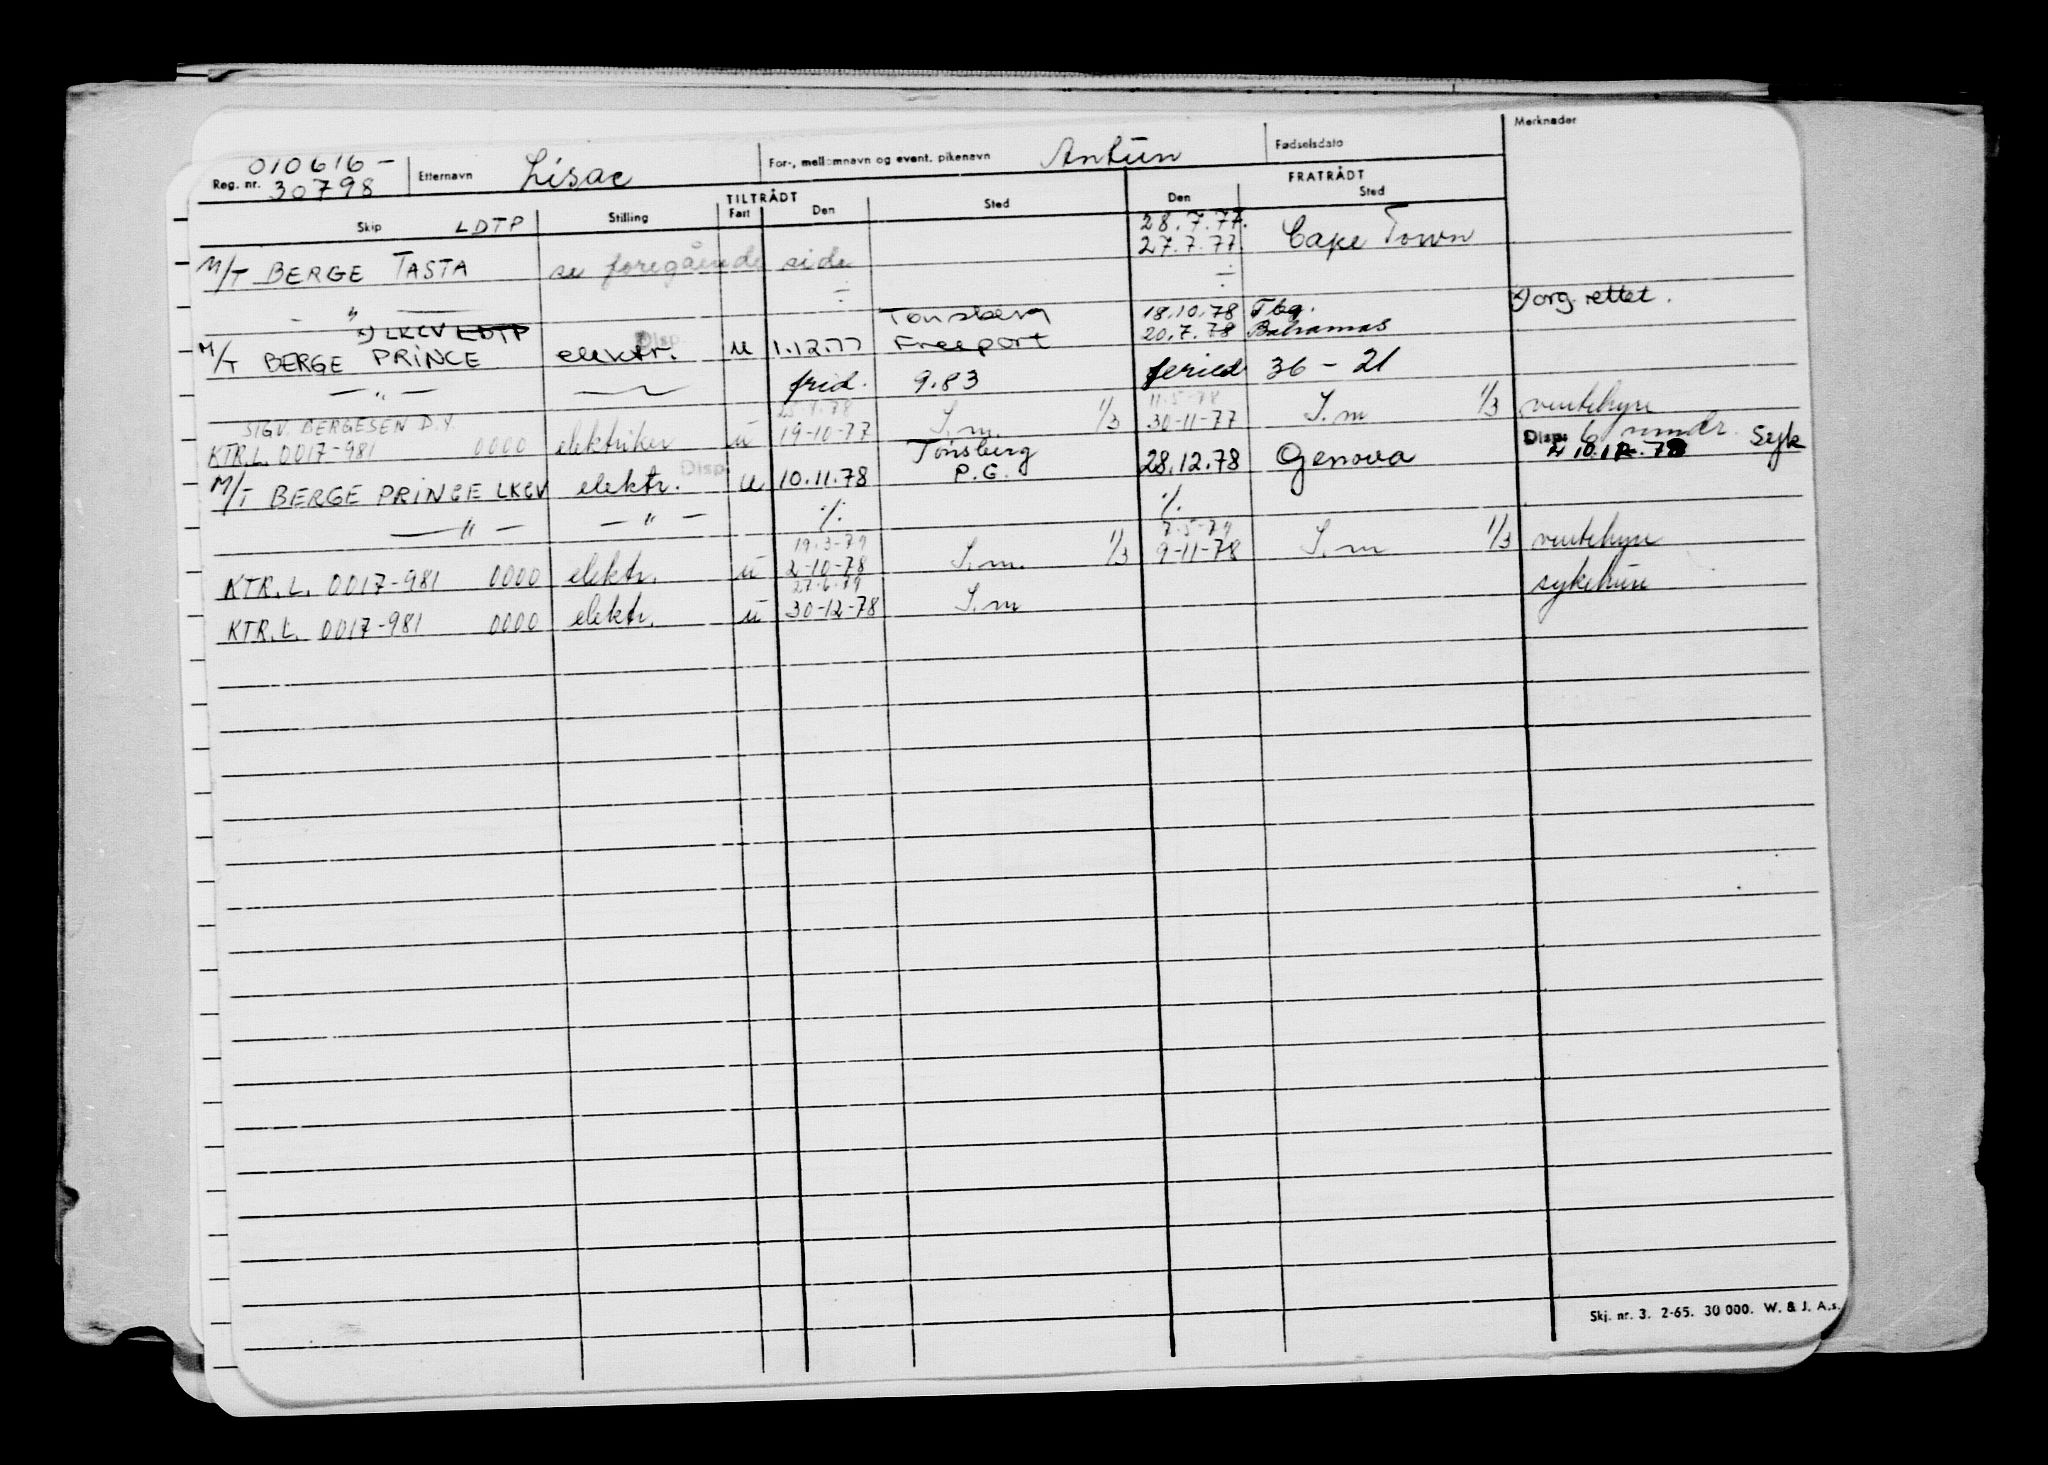 010616-
Reg. nr. 30798 Etternavn Lisac For-, mellomnavn og event. pikenavn Antun Fødselsdato Merknader
TILTRÅDT FRATRÅDT
Skip LDTP Stilling Fart Den Sted Den Sted
28.7.77.
M/T BERGE TASTA se foregående side 27.7.77 Cape Town
" ÷ ÷
x) LKCV LDTP Disp. Tønsberg 18.10.78 Tbg. x) org. rettet.
M/T BERGE PRINCE elektr. u 1.12.77 Freeport 20.7.78 Bahamas
— " — frid. 9.83 feried 36 - 21
SIGV. BERGESEN D.Y. 11.5-78
KTR.L. 0017-981 0000 elektriker u 19-10-77 S.m. 1/3 30-11-77 S.m 1/3 ventehyre
Disp. Tønsberg Disp. 6 mndr.
M/T BERGE PRINCE LKCV elektr. u 10.11.78 P.G. 28.12.78 Genova Syk
— " — — " — ·/. ·/.
19-3-79 7-5-79
KTR.L. 0017-981 0000 elektr. u 2-10-78 S.m. 1/3 9-11-78 S.m 1/3 ventehyre
27-6-79
KTR.L. 0017-981 0000 elektr. u 30-12-78 S.m sykehyre
Skj. nr. 3. 2-65. 30 000. W. & J. A.s.